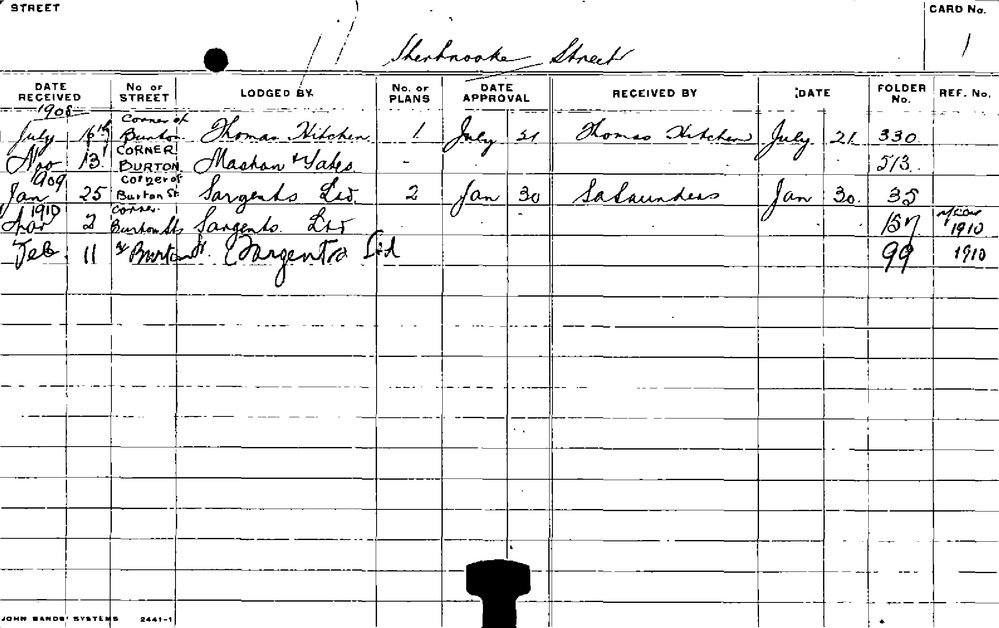 STREET
CARD No.
Sherbrooke Street
1
DATE RECEIVED
No. of STREET
LODGED BY
No. of PLANS
DATE APPROVAL
RECEIVED BY
DATE
FOLDER No.
REF. No.
1908
July 16th Corner of Burton Thomas Hitchen 1 July 21 Thomas Hitchen July 21 330
Nov 13 CORNER BURTON Mashan & Yates - 513
1909
Jan 25 Corner of Burton St Sargents Ltd 2 Jan 30 Saunders Jan 30. 35
1910
2 Corner Burton St Sargents Ltd 1910
Feb 11 Burton St. Sargents Ltd 99 1910
JOHN SANDS' SYSTEMS 2441-1